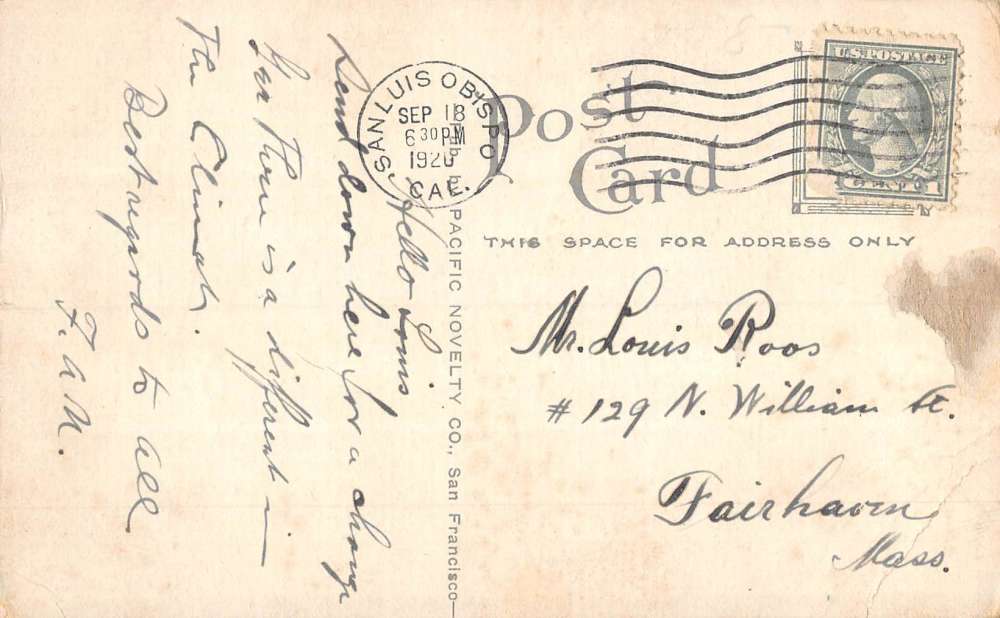 Hello Louis
Send down here for a change
for there is a different
the Climate.
Best regards to all
F. A. N.
PACIFIC NOVELTY CO., San Francisco
SAN LUIS OBISPO
SEP 18
6 30 PM
1920
CAL.
Post
Card
U.S. POSTAGE
1 CENT
THIS SPACE FOR ADDRESS ONLY
Mr. Louis Roos
# 129 N. William St.
Fairhaven
Mass.